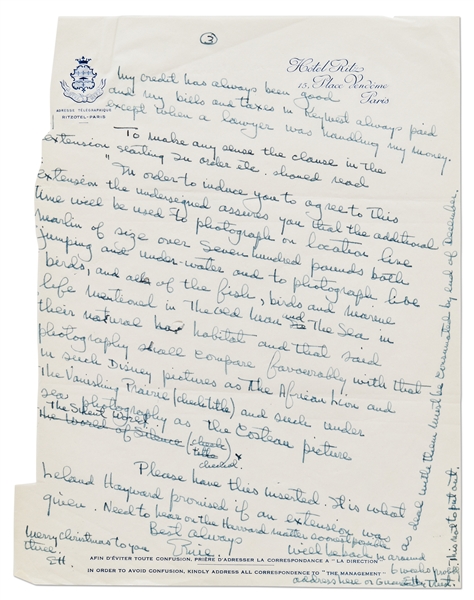 ③
Hotel Ritz
15, Place Vendôme
Paris
ADRESSE TÉLÉGRAPHIQUE
RITZOTEL-PARIS
My credit has always been good
and my bills and taxes in Key West always paid
except when a lawyer was handling my money.
To make any sense the clause in the
extension starting In order etc. should read
"In order to induce you to agree to this
extension the undersigned assures you that the additional
time will be used to photograph on location live
marlin of size over seven hundred pounds both
jumping and under-water and to photograph live
birds, and all of the fish, birds and marine
life mentioned in The Old Man and The Sea in
their natural habitat and that said
photography shall compare favourably with that
in such Disney pictures as The African Lion and
The Vanishing Prairie (check title) and such under
sea photography as the Costeau picture
The Silent World
The World of Silence (check title)
checked.
Please have this inserted. It is what
Leland Hayward promised if an extension was
given. Need to hear on the Harvard matter soonest possible
Best always
Ernie
Merry Christmas to you
three.
EH
Will be back in around
6 weeks
address here or Guaranty Trust.
AFIN D'ÉVITER TOUTE CONFUSION, PRIÈRE D'ADRESSER LA CORRESPONDANCE A "LA DIRECTION"
IN ORDER TO AVOID CONFUSION, KINDLY ADDRESS ALL CORRESPONDENCE TO "THE MANAGEMENT"
as deal with them must be consummated by end of December.